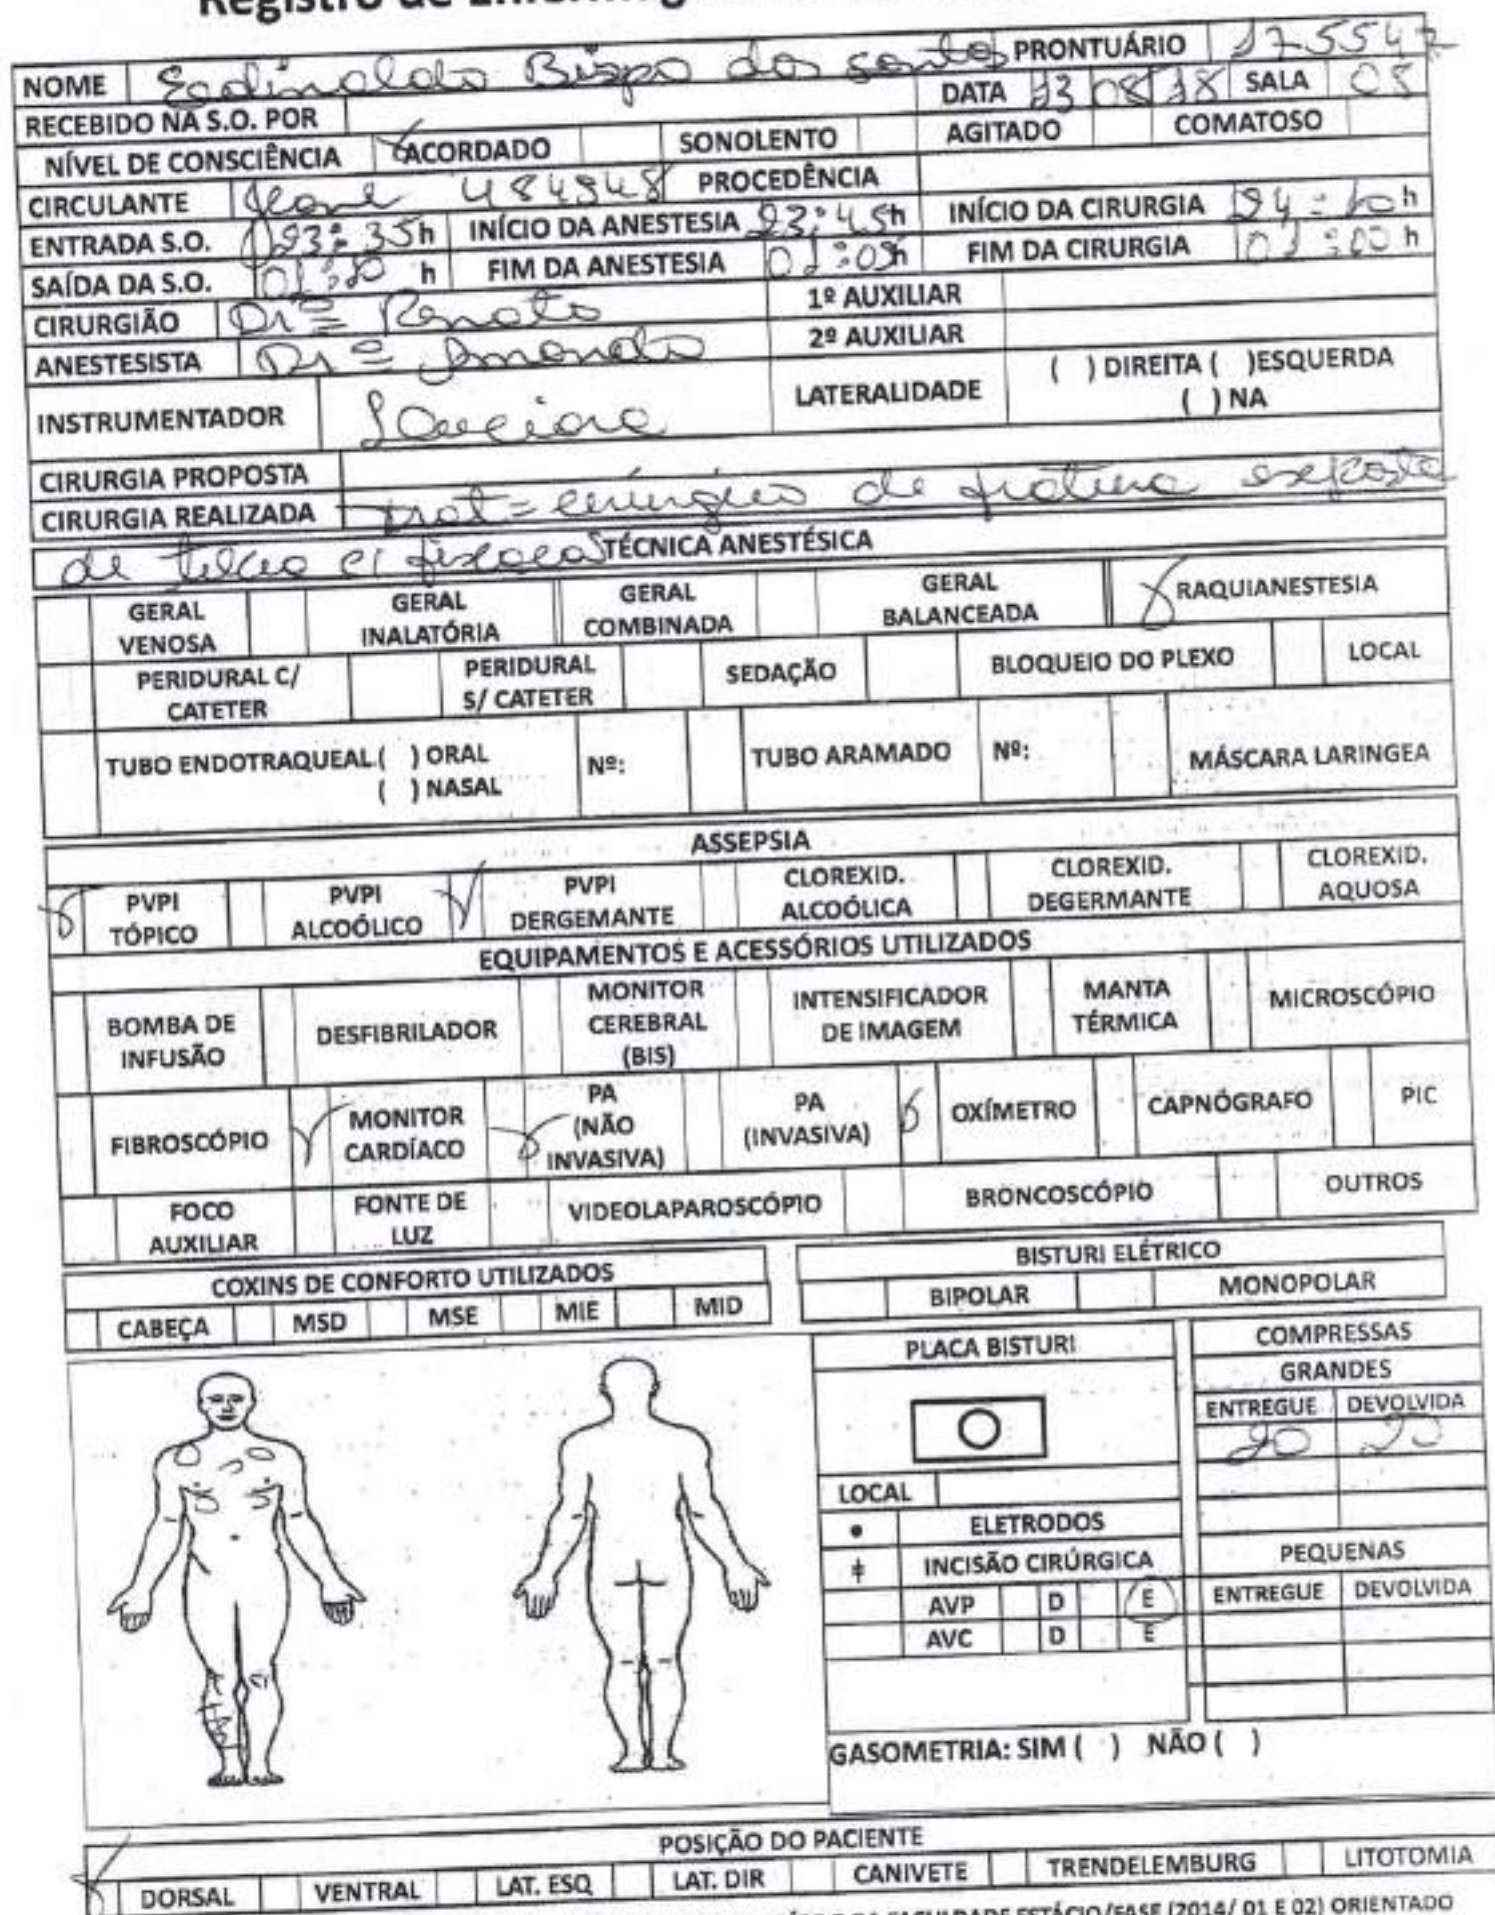 Registro de Enfermag
NOME Eedinaldo Bispo dos santos PRONTUÁRIO 175547
RECEBIDO NA S.O. POR DATA 13 08 18 SALA 05
NÍVEL DE CONSCIÊNCIA ACORDADO SONOLENTO AGITADO COMATOSO
CIRCULANTE 484948 PROCEDÊNCIA
ENTRADA S.O. 23:35h INÍCIO DA ANESTESIA 23:45h INÍCIO DA CIRURGIA 24:10h
SAÍDA DA S.O. 01:20 h FIM DA ANESTESIA 01:05h FIM DA CIRURGIA 01:00 h
CIRURGIÃO Drº Renato 1º AUXILIAR
ANESTESISTA Drª Amanda 2º AUXILIAR
INSTRUMENTADOR Luciara LATERALIDADE ( ) DIREITA ( )ESQUERDA
( ) NA
CIRURGIA PROPOSTA
CIRURGIA REALIZADA trat= cirúrgico de fratura exposta
de tibia c/ fixaca TÉCNICA ANESTÉSICA
GERAL VENOSA GERAL INALATÓRIA GERAL COMBINADA GERAL BALANCEADA X RAQUIANESTESIA
PERIDURAL C/ CATETER PERIDURAL S/ CATETER SEDAÇÃO BLOQUEIO DO PLEXO LOCAL
TUBO ENDOTRAQUEAL ( ) ORAL Nº: TUBO ARAMADO Nº: MÁSCARA LARINGEA
( ) NASAL
ASSEPSIA
PVPI TÓPICO PVPI ALCOÓLICO PVPI DERGEMANTE CLOREXID. ALCOÓLICA CLOREXID. DEGERMANTE CLOREXID. AQUOSA
EQUIPAMENTOS E ACESSÓRIOS UTILIZADOS
BOMBA DE INFUSÃO DESFIBRILADOR MONITOR CEREBRAL (BIS) INTENSIFICADOR DE IMAGEM MANTA TÉRMICA MICROSCÓPIO
FIBROSCÓPIO MONITOR CARDÍACO PA (NÃO INVASIVA) PA (INVASIVA) OXÍMETRO CAPNÓGRAFO PIC
FOCO AUXILIAR FONTE DE LUZ VIDEOLAPAROSCÓPIO BRONCOSCÓPIO OUTROS
COXINS DE CONFORTO UTILIZADOS BISTURI ELÉTRICO
CABEÇA MSD MSE MIE MID BIPOLAR MONOPOLAR
PLACA BISTURI COMPRESSAS
GRANDES
ENTREGUE DEVOLVIDA
20 20
LOCAL
ELETRODOS
INCISÃO CIRÚRGICA PEQUENAS
AVP D E ENTREGUE DEVOLVIDA
AVC D E
GASOMETRIA: SIM ( ) NÃO ( )
POSIÇÃO DO PACIENTE
DORSAL VENTRAL LAT. ESQ LAT. DIR CANIVETE TRENDELEMBURG LITOTOMIA
DA FACULDADE ESTÁCIO/FASE (2014/ 01 E 02) ORIENTADO